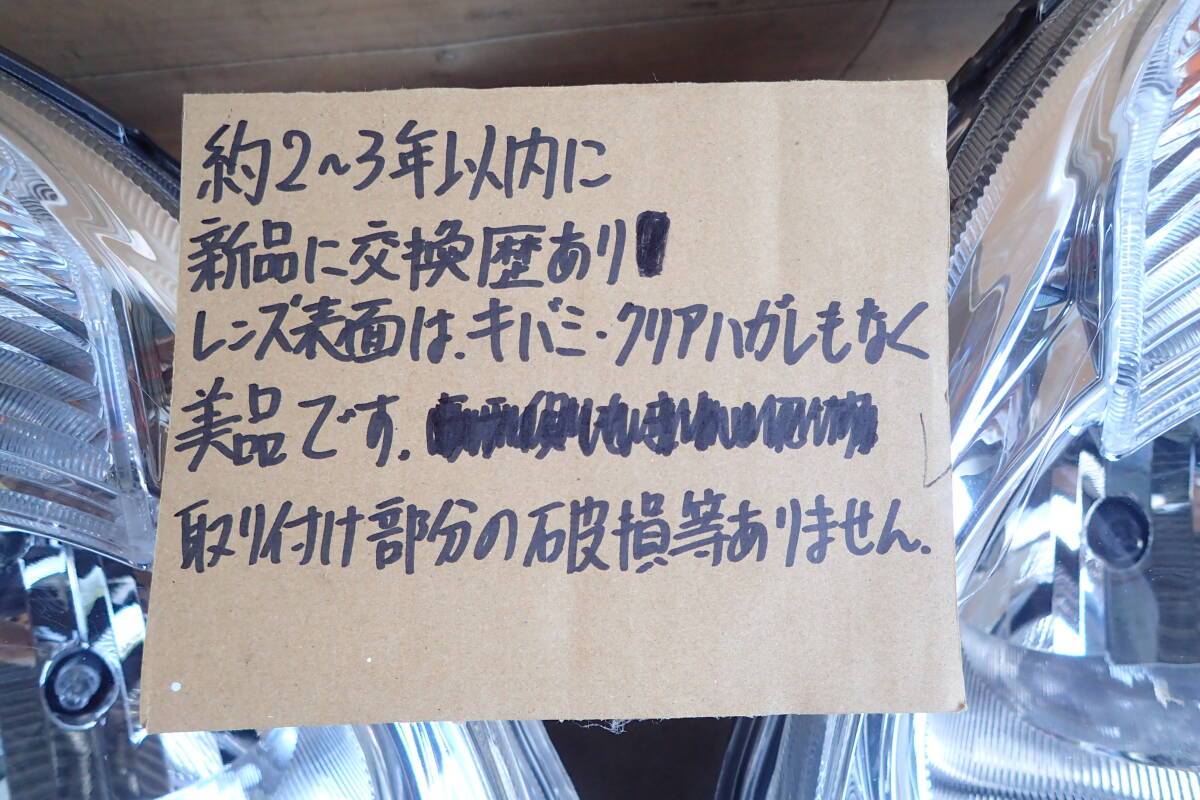 約2~3年以内に
新品に交換歴あり
レンズ表面は.キバミ・クリアハガレもなく
美品です.
取り付け部分の破損等ありません.